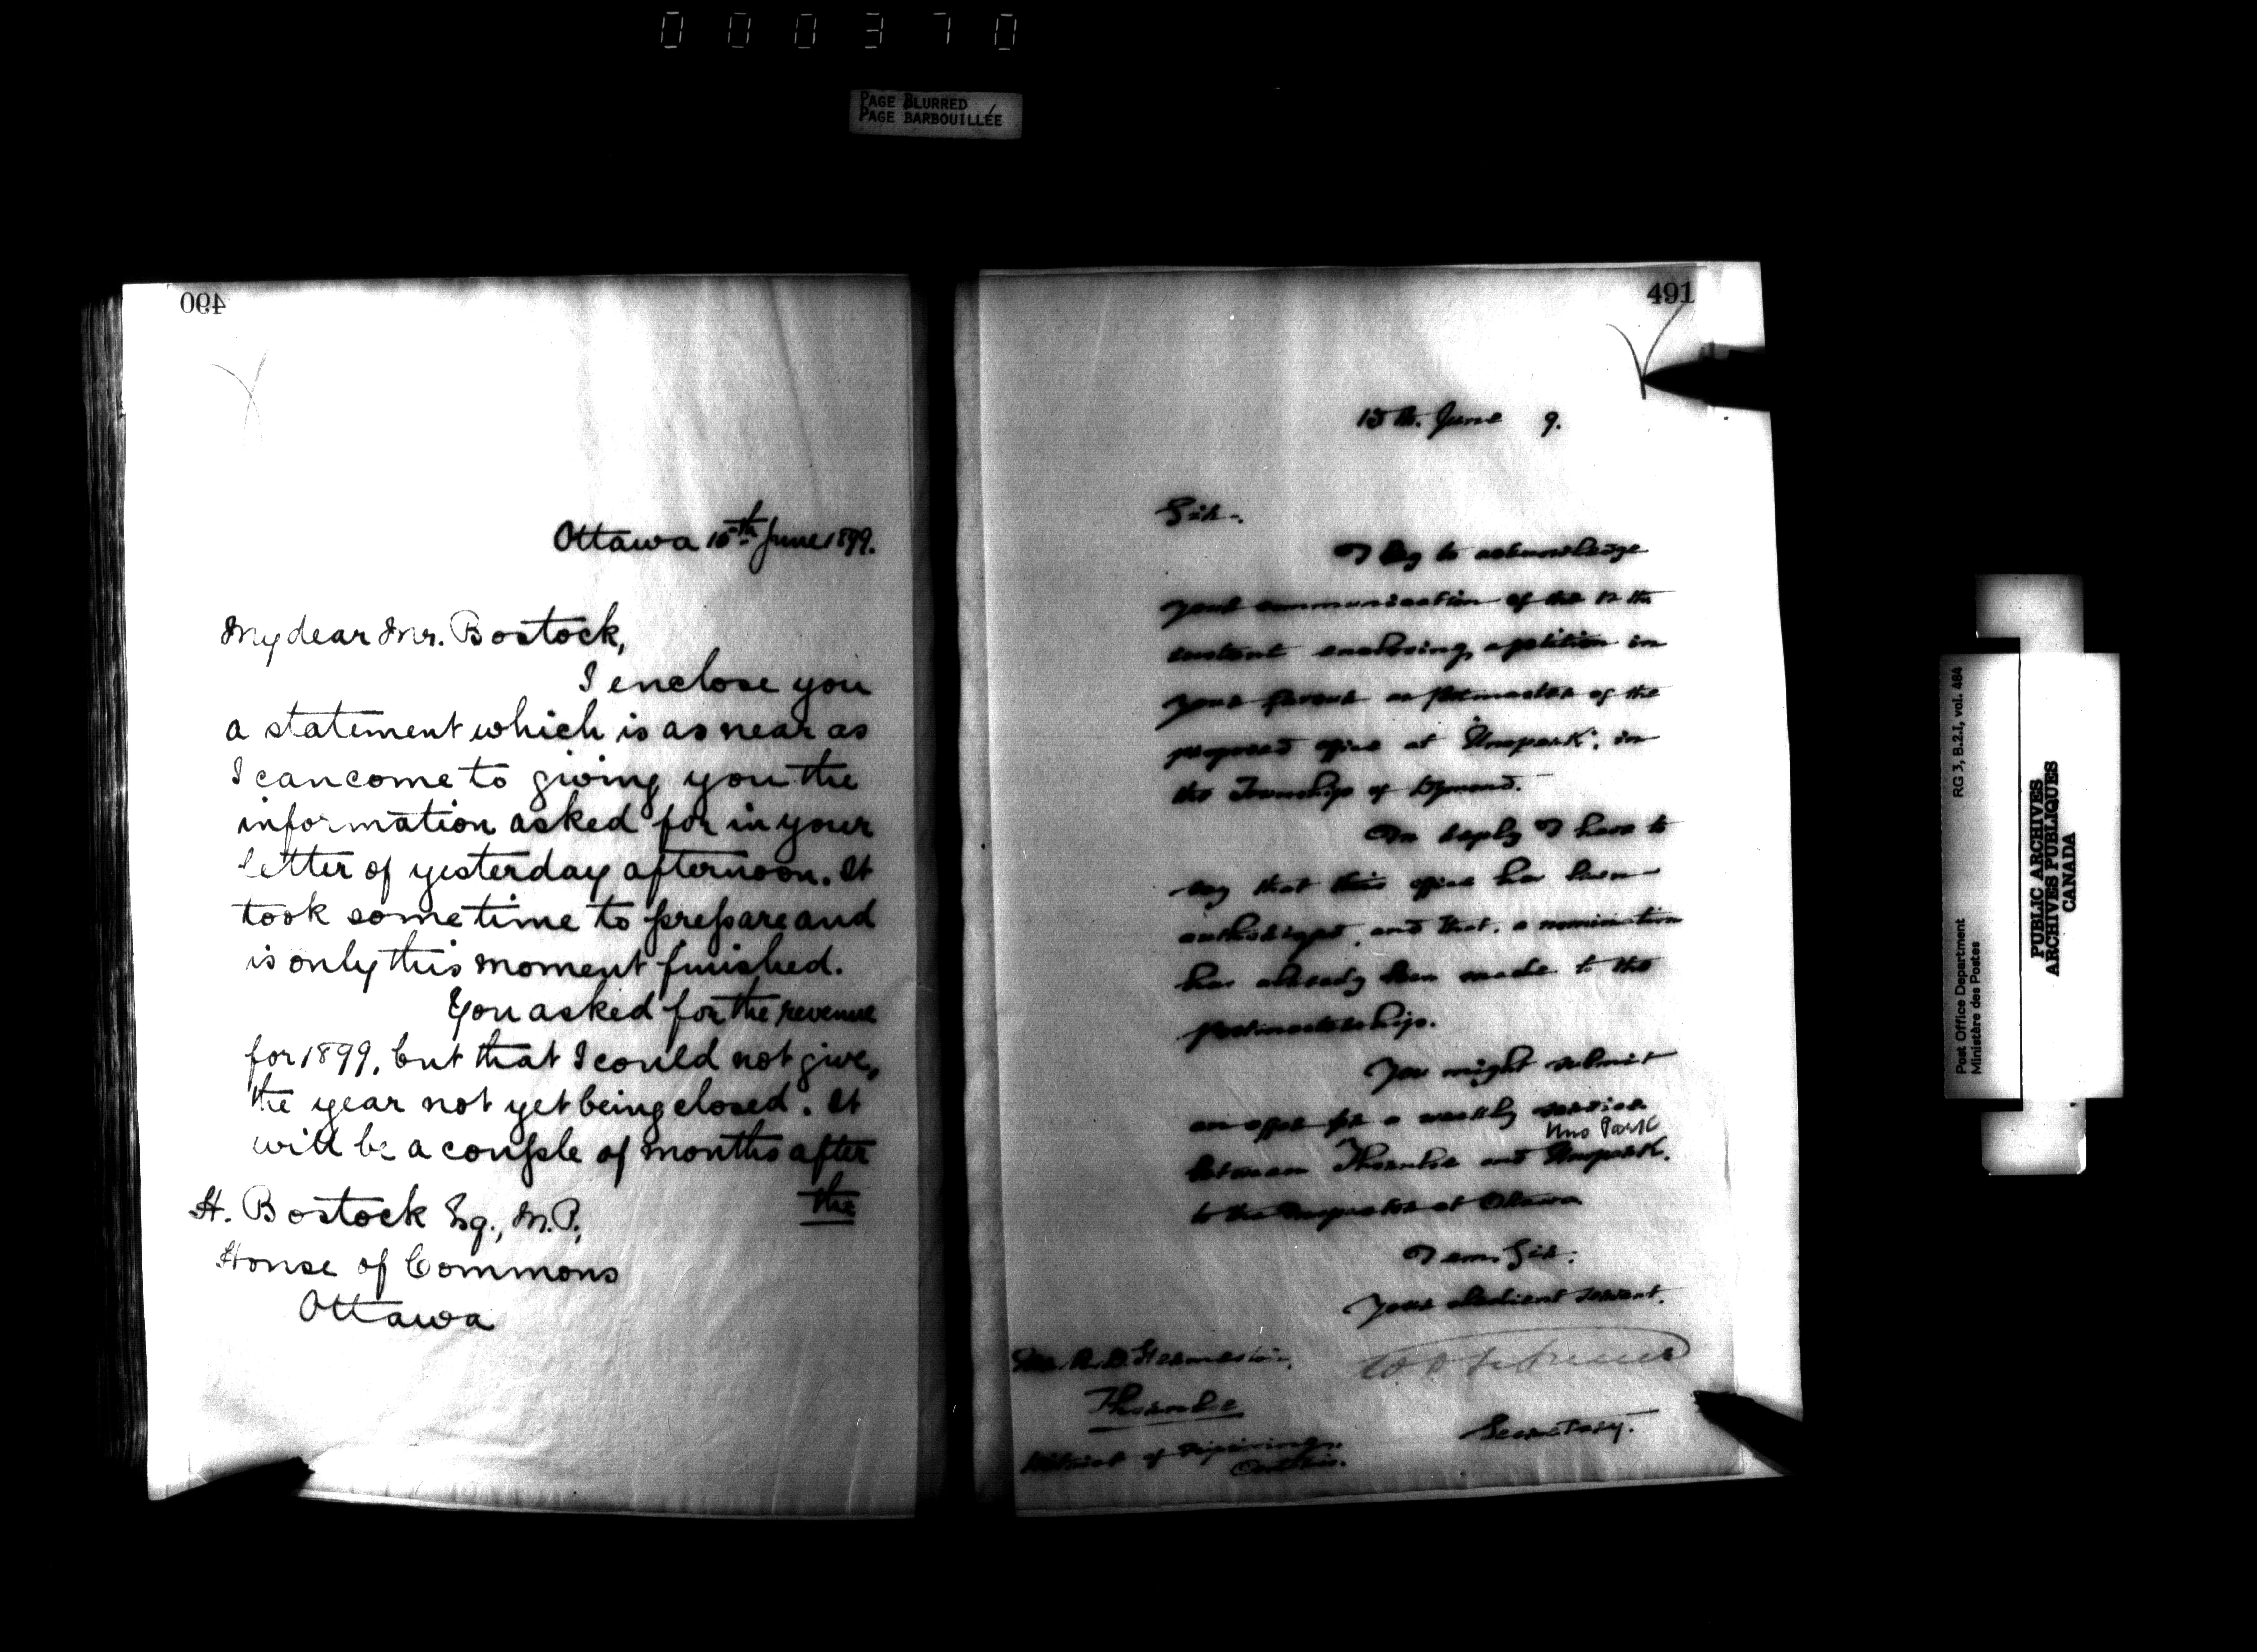 000370
PAGE BLURRED
PAGE BARBOUILLÉE
490
Ottawa 15th June 1899.
My dear Mr. Bostock,
I enclose you
a statement which is as near as
I can come to giving you the
information asked for in your
letter of yesterday afternoon. It
took some time to prepare and
is only this moment finished.
You asked for the revenue
for 1899, but that I could not give,
the year not yet being closed. It
will be a couple of months after
the
H. Bostock Esq., M.P.,
House of Commons
Ottawa
491
15th. June 9.
Sir.
I beg to acknowledge
your communication of the 12th
instant enclosing a petition in
your favour as Postmaster of the
proposed office at Unopark, in
the Township of Dymond.
In reply I have to
say that this office has been
authorized, and that a nomination
has already been made to the
postmastership.
You might submit
an offer for a weekly service
Uno Park
between Thornloe and Unopark.
to the Inspector at Ottawa
I am, Sir.
Your obedient servant.
Secretary.
Thornloe
District of Nipissing.
Ontario.
RG 3, B.2.I, vol. 484
Post Office Department
Ministère des Postes
PUBLIC ARCHIVES
ARCHIVES PUBLIQUES
CANADA